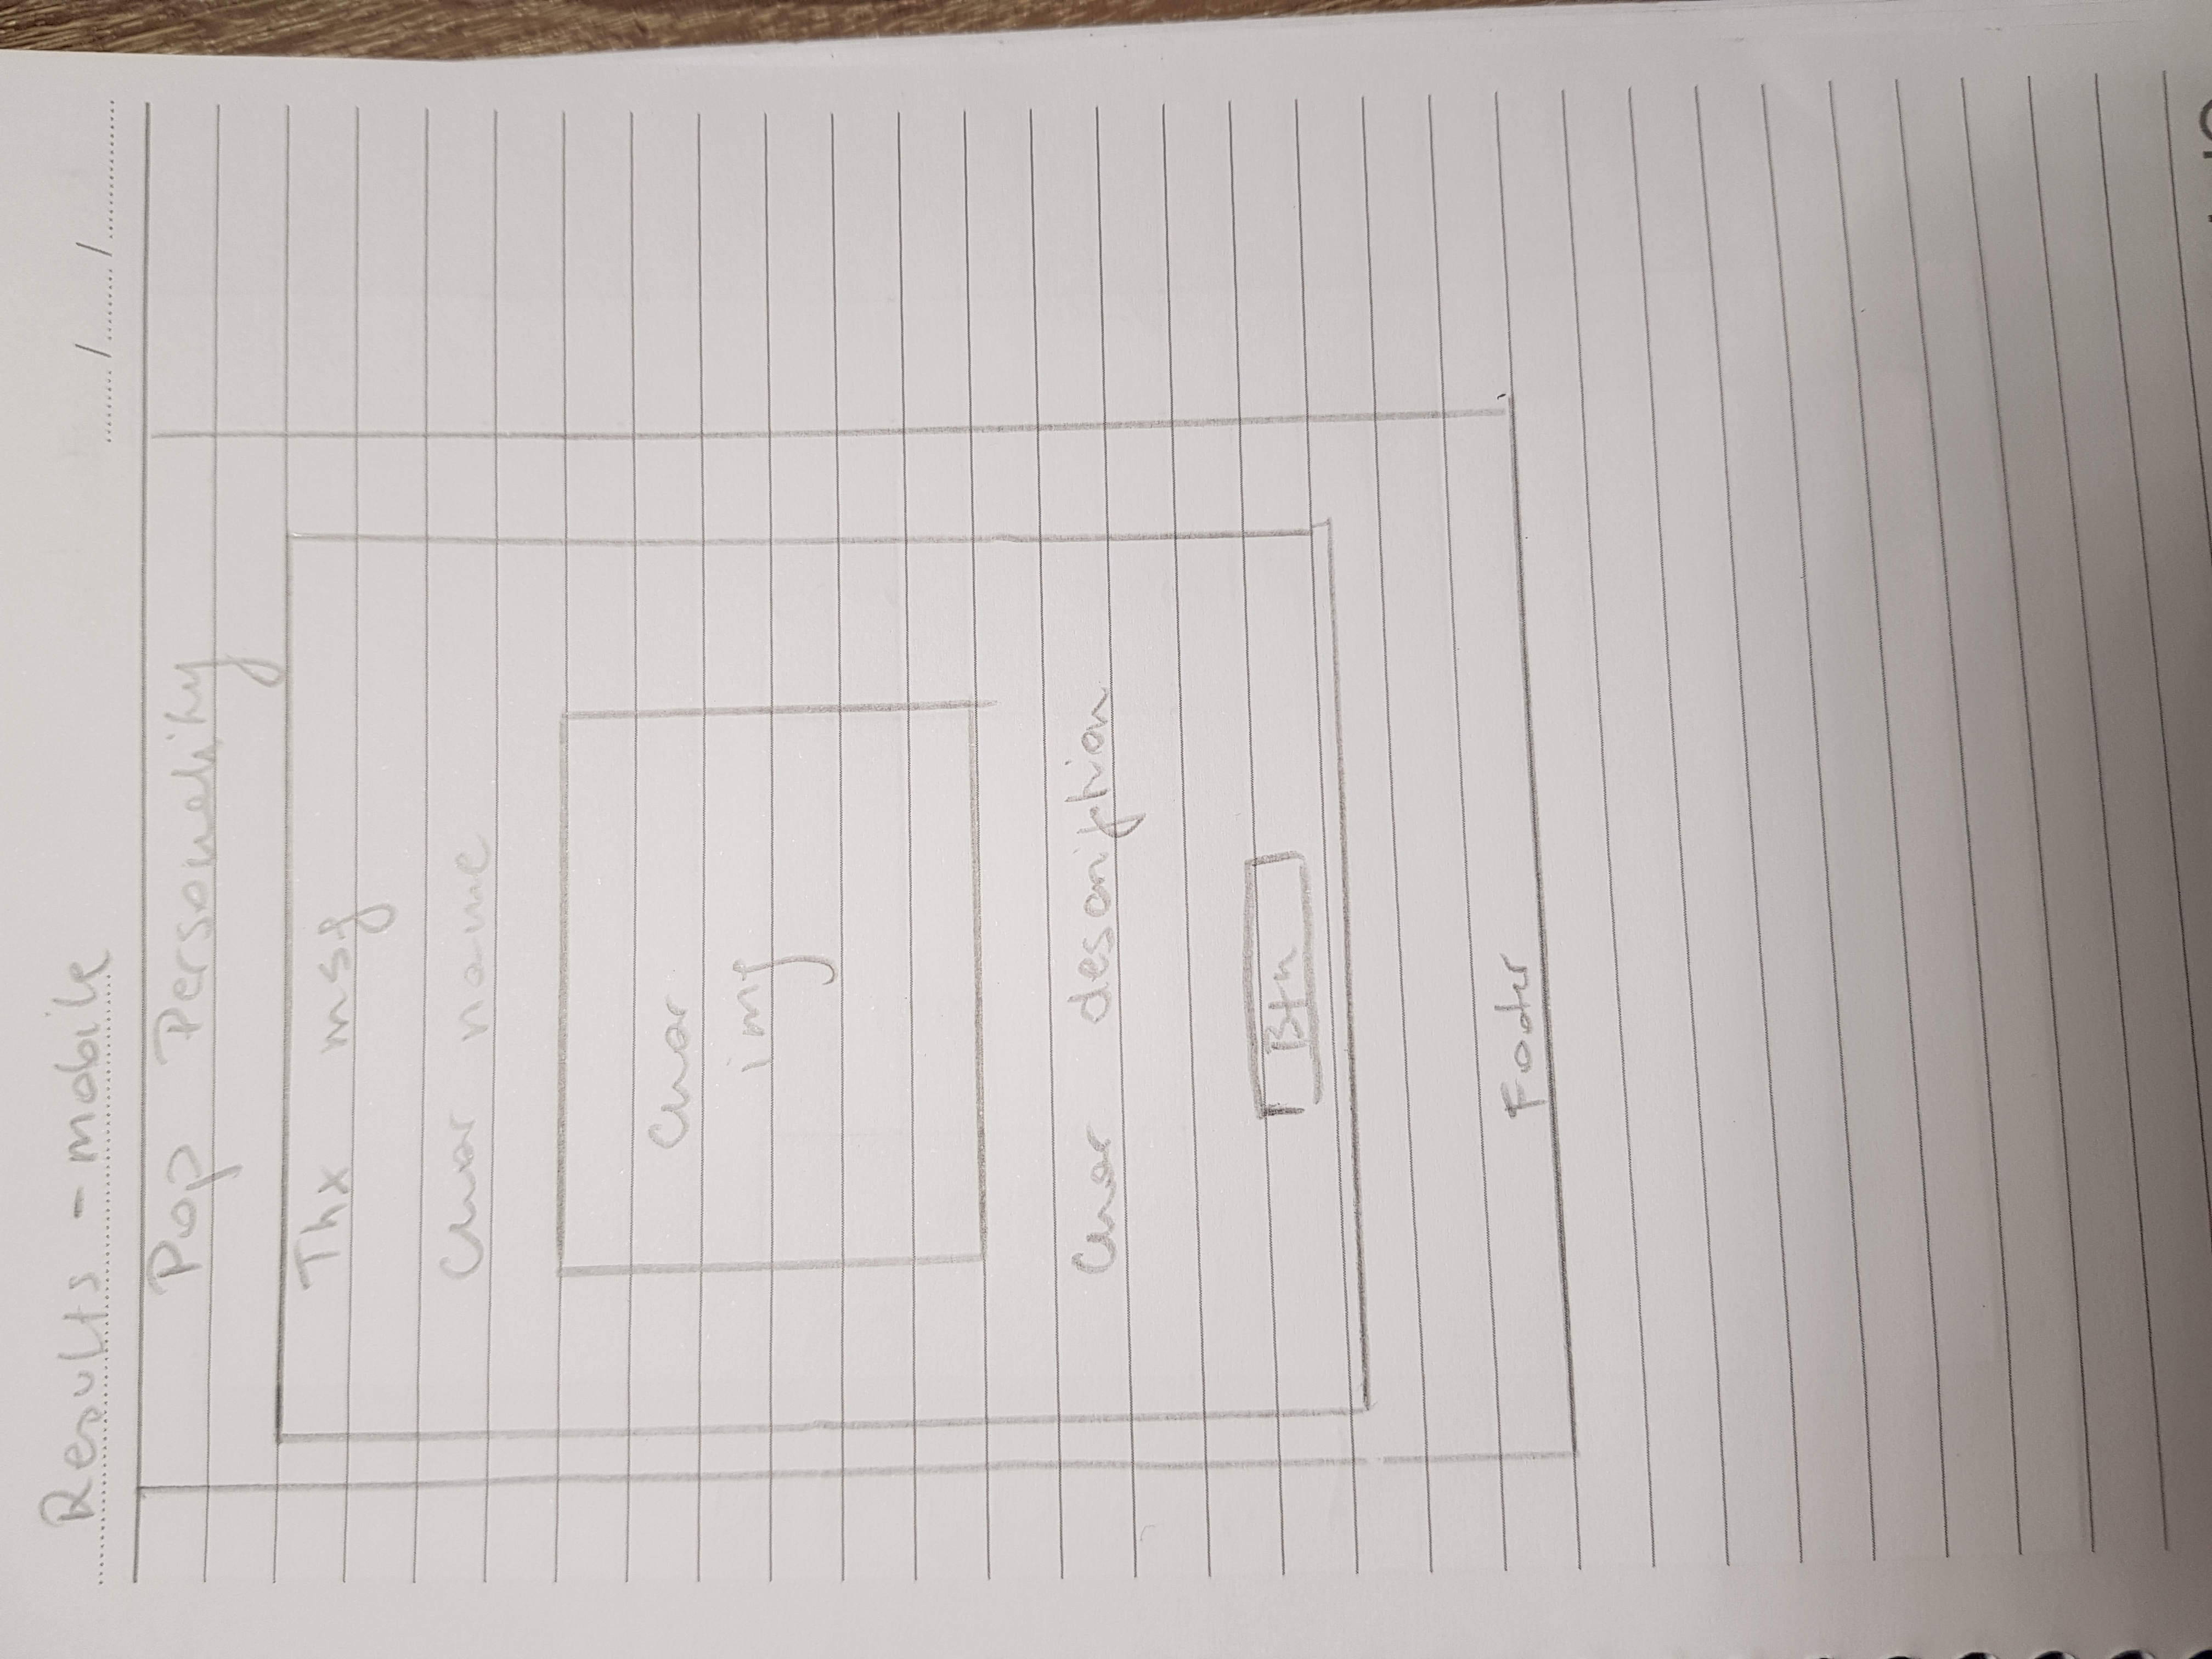 Results - mobile
/ /
Pop Personality
Thx msg
Char name
Char
img
Char description
Btn
Footer